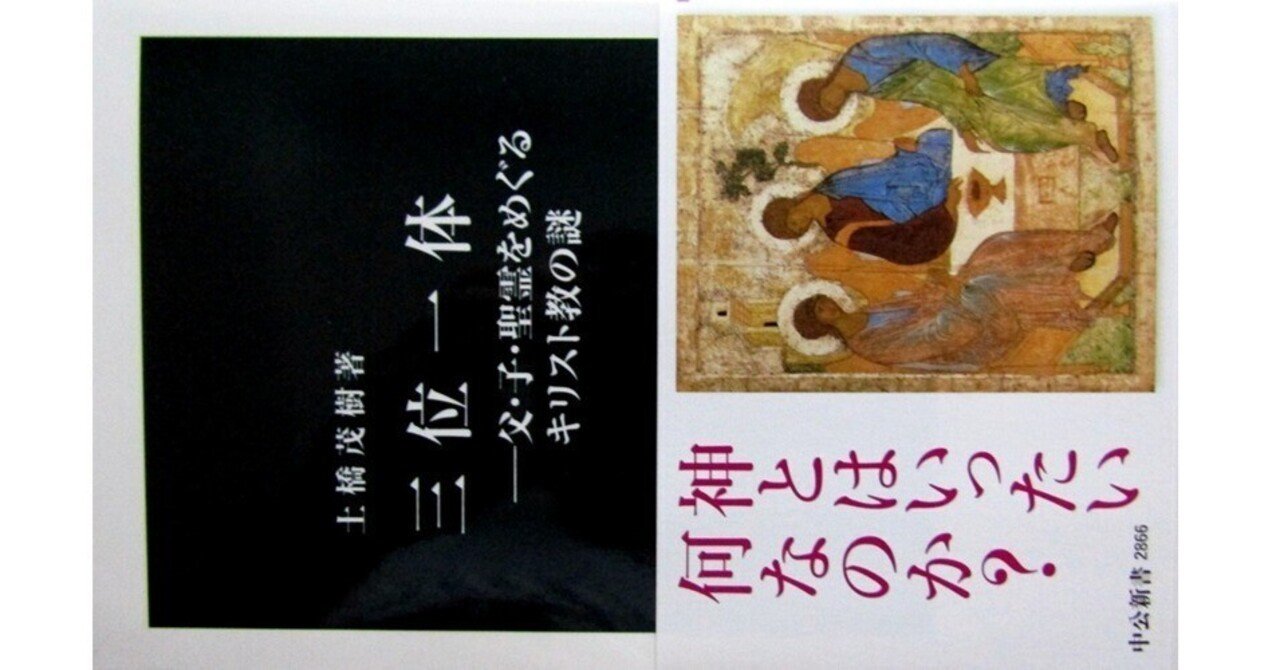 土橋茂樹著
三位一体
―父・子・聖霊をめぐる
キリスト教の謎
神とはいったい
何なのか?
中公新書 2866